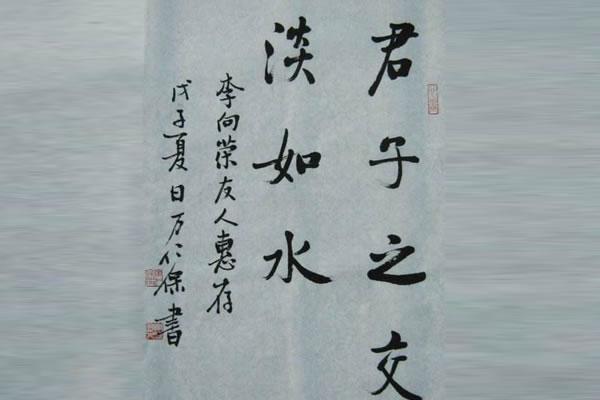 君子之交
淡如水
李向荣友人惠存
戊子夏日万仁保书